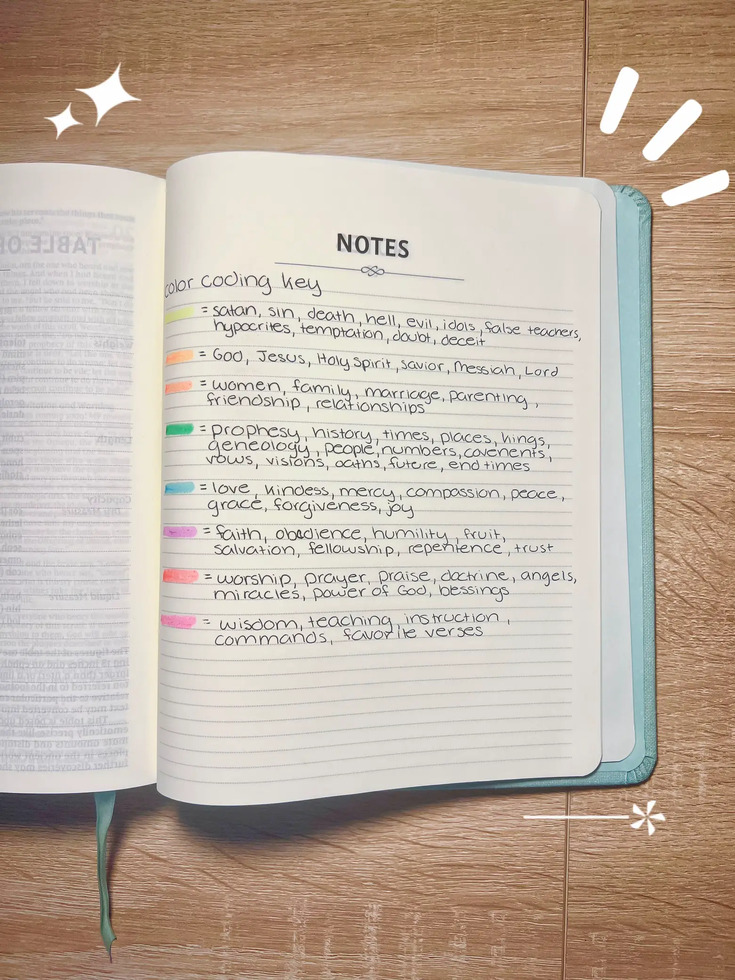 TABLE O
NOTES
color coding key
= satan, sin, death, hell, evil, idols, false teachers,
hypocrites, temptation, doubt, deceit
= God, Jesus, Holy Spirit, savior, messiah, Lord
= women, family, marriage, parenting,
friendship, relationships
= prophesy, history, times, places, kings,
geneology, people, numbers, covenents,
vows, visions, oaths, future, end times
= love, kindess, mercy, compassion, peace,
grace, forgiveness, joy
= faith, obedience, humility, fruit,
salvation, fellowship, repentence, trust
= worship, prayer, praise, doctrine, angels,
miracles, power of God, blessings
= wisdom, teaching, instruction,
commands, favorite verses